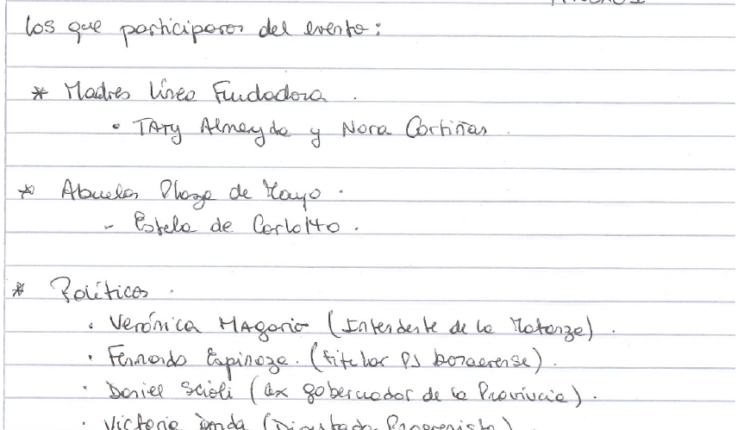 los que participaron del evento:
* Madres línea Fundadora.
• TATy Almeyda y Nora Cortiñas.
* Abuelas Plaza de Mayo.
- Estela de Carlotto.
* Políticos.
• Verónica MAgario (Intendente de la Matanza).
• Fernando Espinoza. (titular PJ bonaerense).
• Daniel Scioli (ex gobernador de la Provincia).
• Victoria Donda (Diputada Progresista)